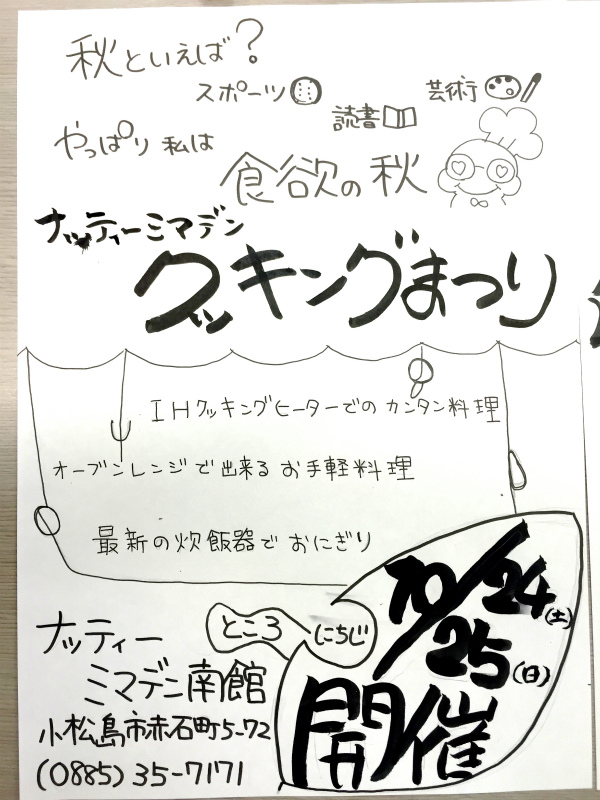 秋といえば?
スポーツ
読書
芸術
やっぱり 私は
食欲の 秋
ナッティーミマデン
クッキングまつり
IHクッキングヒーターでの カンタン料理
オーブンレンジで出来る お手軽料理
最新の炊飯器で おにぎり
ところ
にちじ
10/24(土)
25(日)
開催
ナッティー
ミマデン南館
小松島市赤石町5-72
(0885) 35-7171